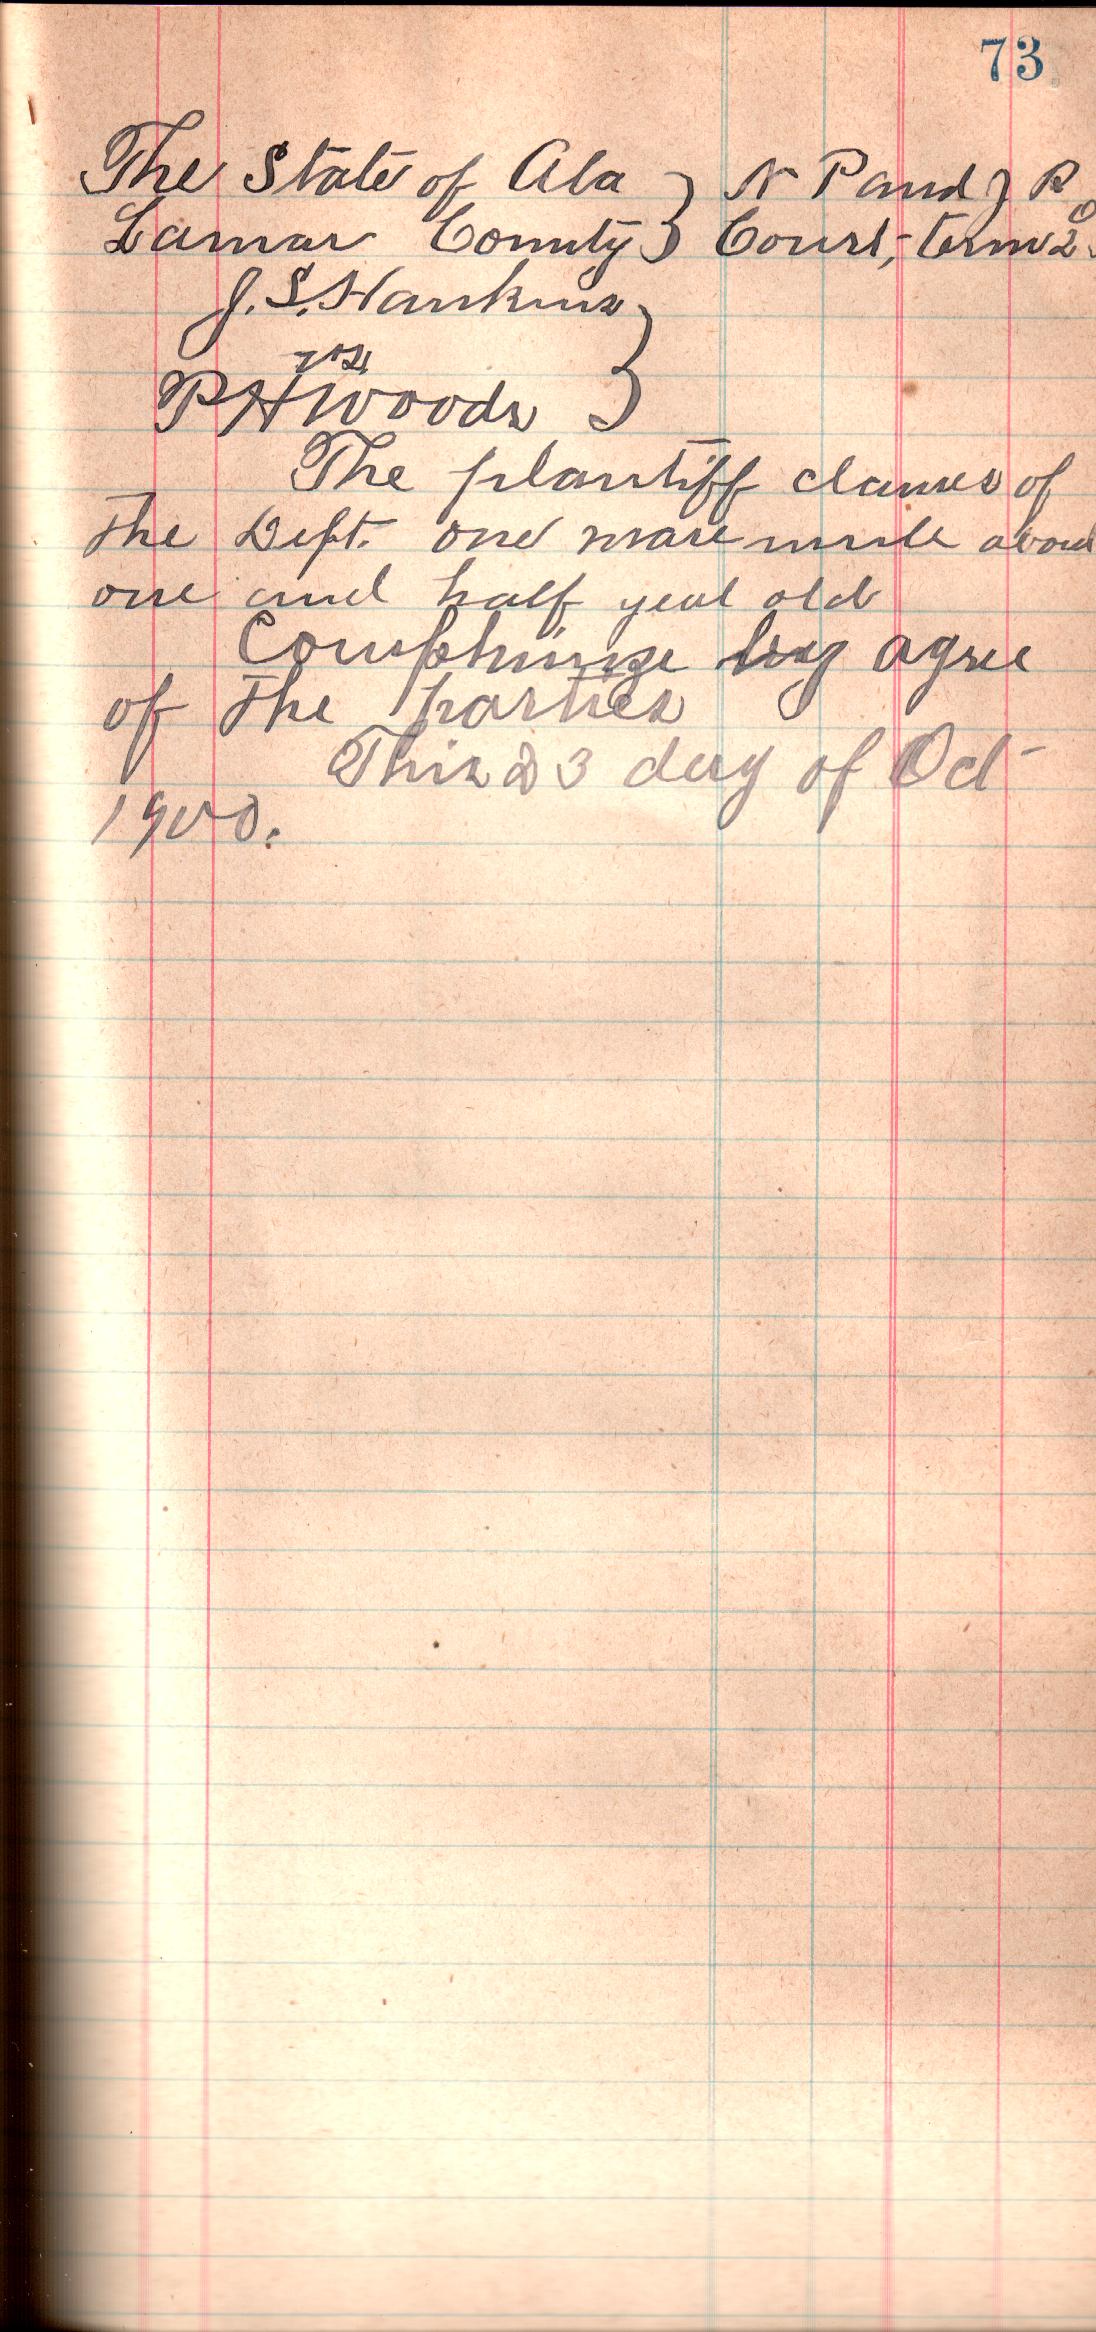 73
The State of Ala } N P and J P
Lamar County } Court, term 2
J. S. Hankins }
vs.
P H Woods }
The plantiff clames of
the Deft. one mare mule about
one and half year old
Comphimise by agree
of the parties
This 23 day of Oct
1900.